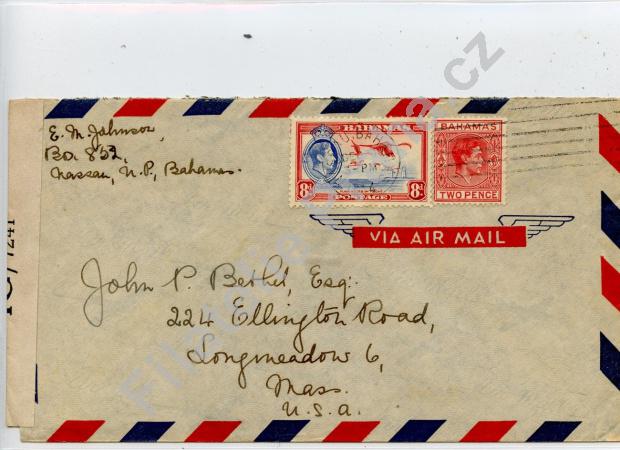 E. M. Johnson,
Box 852,
Nassau, N.P., Bahamas.
BAHAMAS
8d 8d
POSTAGE
BAHAMAS
TWO PENCE
VIA AIR MAIL
John P. Bethel, Esq.
224 Ellington Road,
Longmeadow 6,
Mass.
U.S.A.
/7241